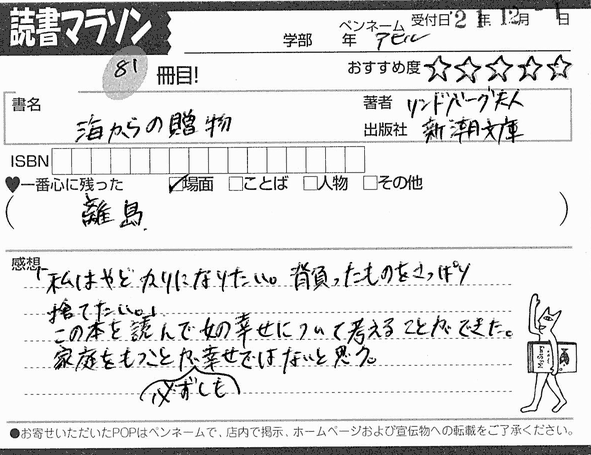 読書マラソン
81 冊目!
学部 年 ペンネーム アピル 受付日 '21年 12月 -1日
おすすめ度 ☆☆☆☆☆
書名 海からの贈物
著者 リンドバーグ夫人
出版社 新潮文庫
ISBN
♥一番心に残った ☑場面 □ことば □人物 □その他
( 離島. )
感想
「私はやどかりになりたい。背負ったものをさっぱり
捨てたい。」
この本を読んで女の幸せについて考えることができた。
家庭をもつことが必ずしも幸せではないと思う。
●お寄せいただいたPOPはペンネームで、店内で掲示、ホームページおよび宣伝物への転載をご了承ください。